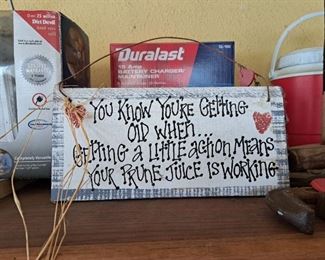 Over 25 million
Dirt Devil
Duralast
15 Amp
BATTERY CHARGER/
MAINTAINER
YOU KNOW YOU'RE GETTING
OLD WHEN...
GETTING A LITTLE ACTION MEANS
YOUR PRUNE JUICE IS WORKING
Completely Versatile